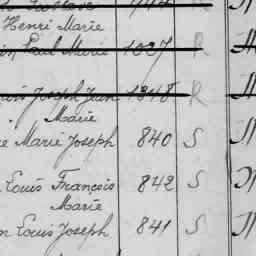 Gustave 444
Henri Marie
Paul Marie 1027 R
Joseph Jean 1318 R
Marie
Marie Joseph 840 S
Louis François 842 S
Marie
Louis Joseph 841 S